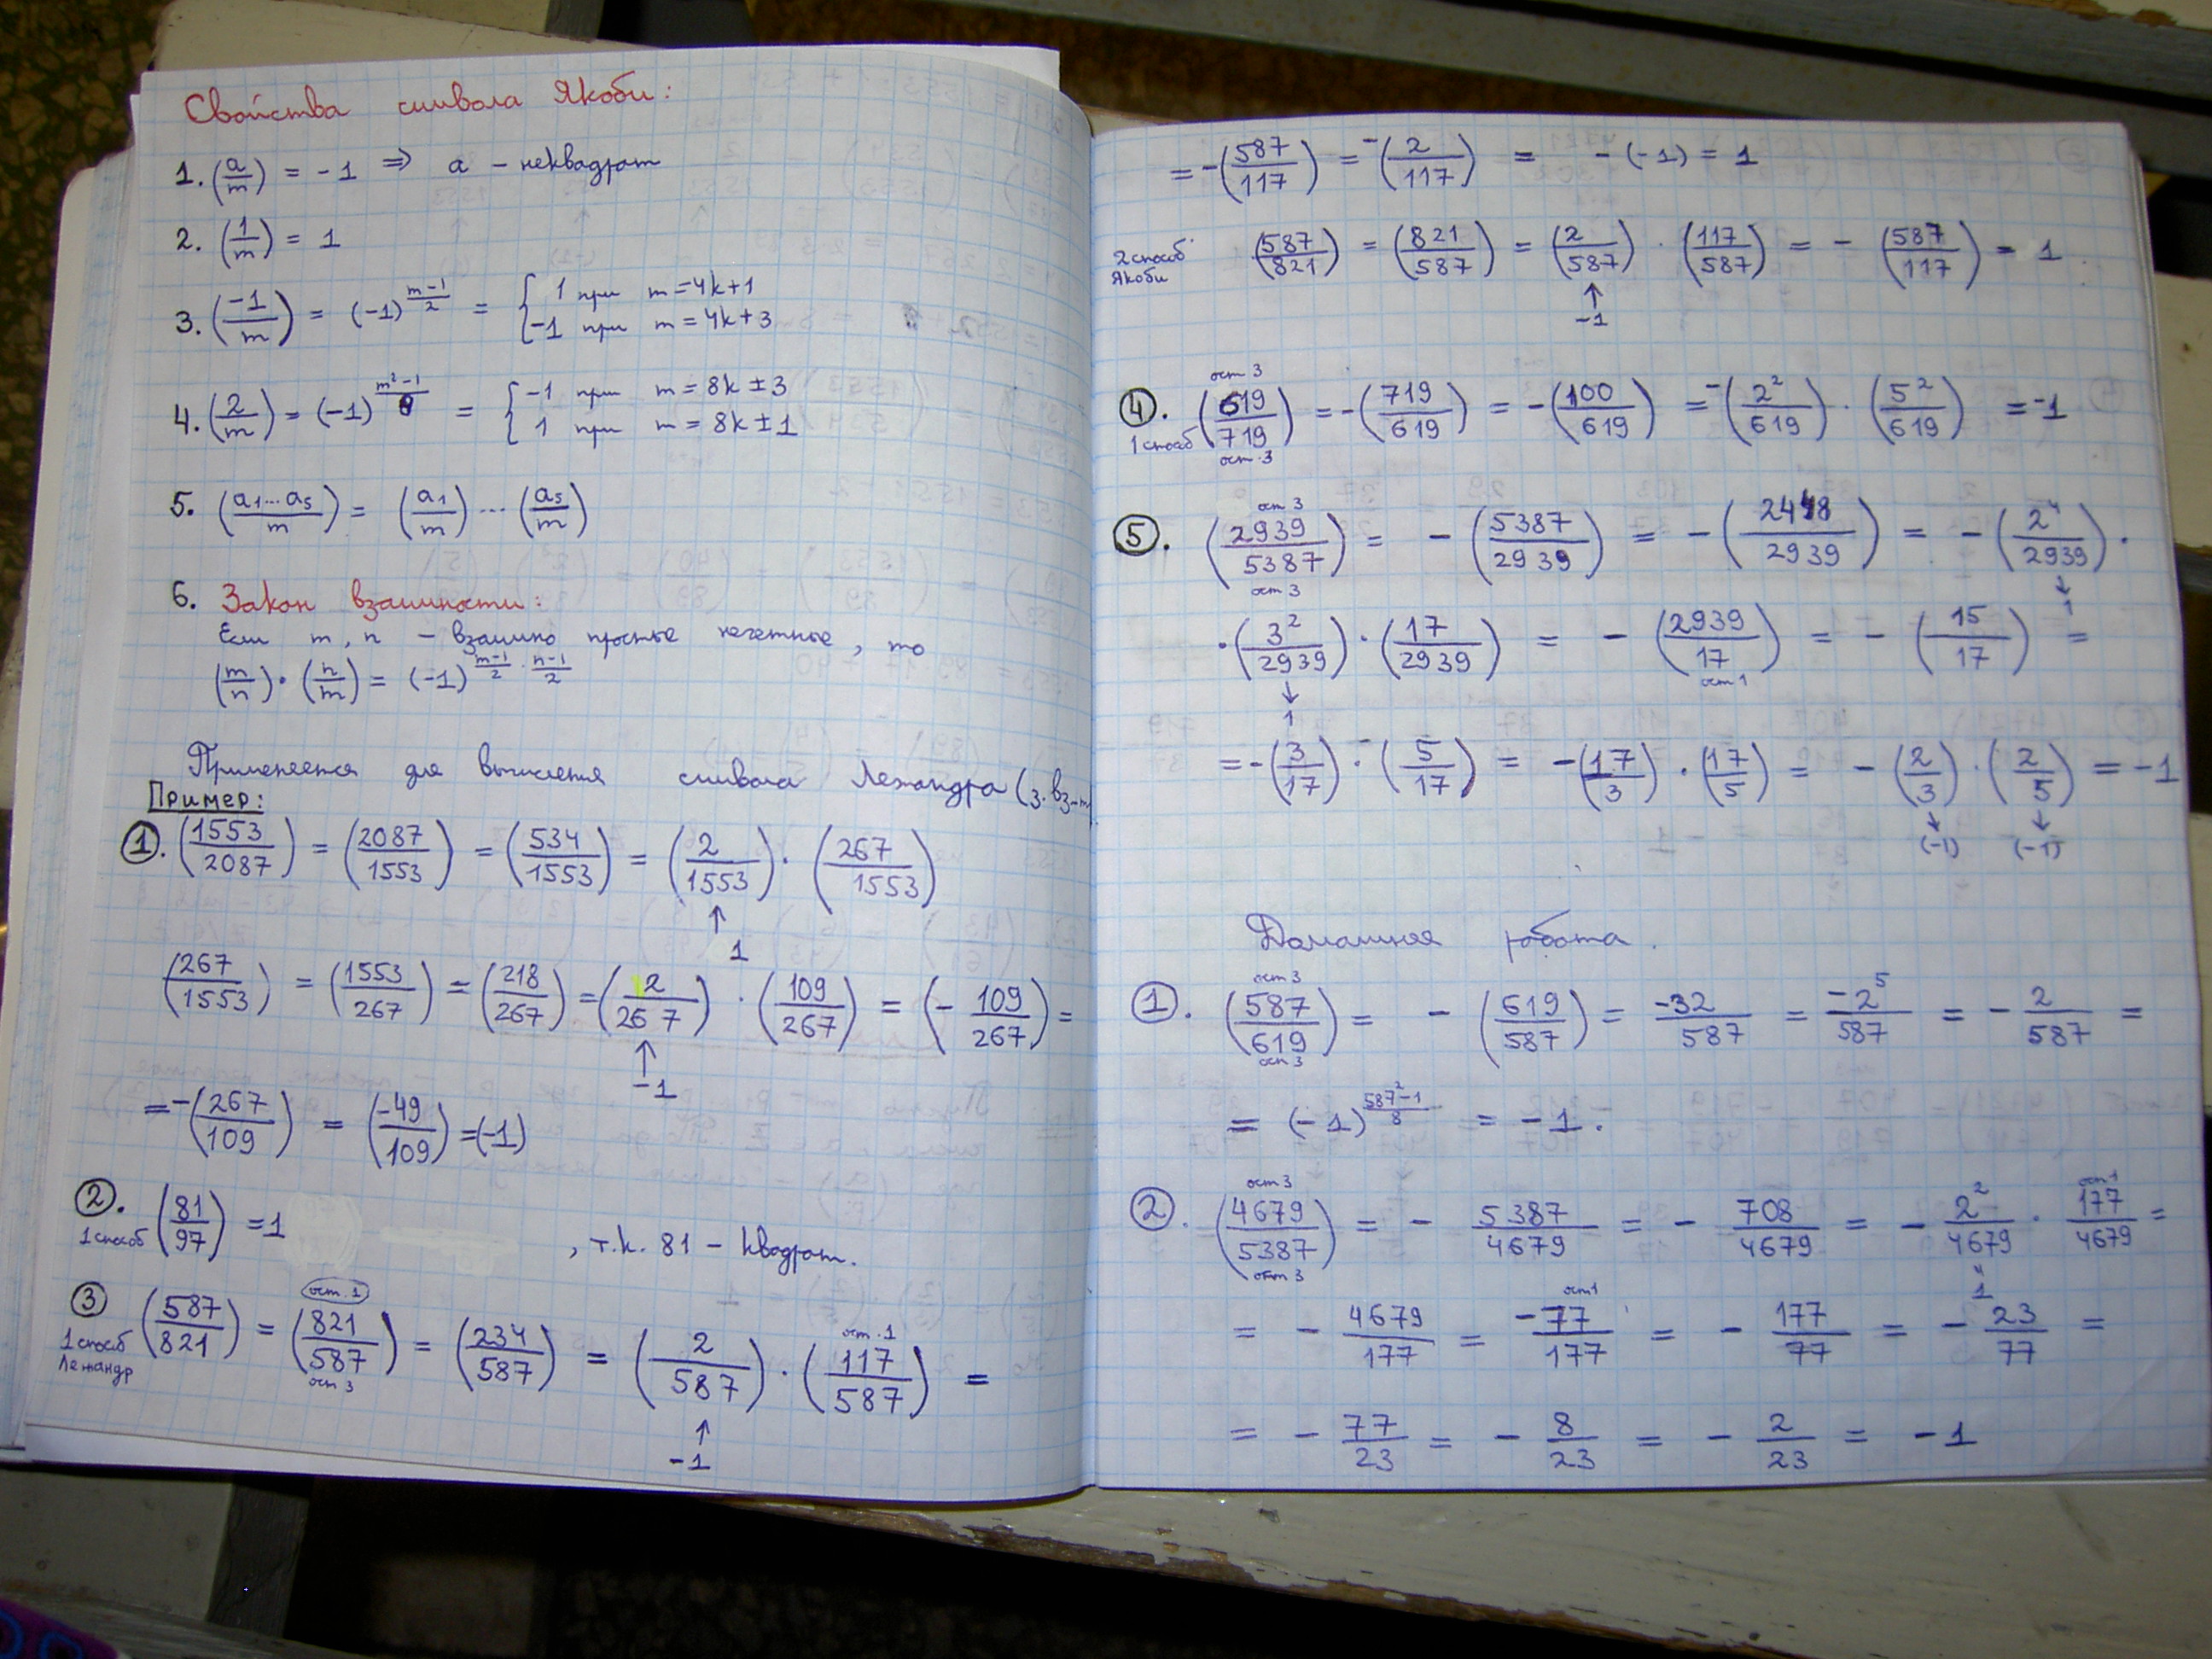 Свойства символа Якоби:
1. (a/m) = -1 ⇒ a - неквадрат
2. (1/m) = 1
3. (-1/m) = (-1)^((m-1)/2) = { 1 при m=4k+1
-1 при m=4k+3
4. (2/m) = (-1)^((m²-1)/8) = { -1 при m=8k±3
1 при m=8k±1
5. (a₁...a₅/m) = (a₁/m) ... (a₅/m)
6. Закон взаимности:
Если m, n - взаимно простые нечетные, то
(m/n)·(n/m) = (-1)^((m-1)/2 · (n-1)/2)
Применяется для вычисления символа Лежандра (з. вз-ти)
Пример:
1. (1553/2087) = (2087/1553) = (534/1553) = (2/1553)·(267/1553)
↑ 1
(267/1553) = (1553/267) = (218/267) = (2/267)·(109/267) = (-109/267) =
↑ -1
= -(267/109) = (-49/109) = (-1)
2. 1 способ (81/97) = 1 , т.к. 81 - квадрат.
ост. 1
3 1 способ Лежандр (587/821) = (821/587) = (234/587) = (2/587)·(117/587) =
ост 3 ост. 1
↑ -1
= -(587/117) = -(2/117) = -(-1) = 1
2 способ Якоби (587/821) = (821/587) = (2/587)·(117/587) = -(587/117) = 1
↑ -1
ост 3
4. 1 способ (619/719) = -(719/619) = -(100/619) = -(2²/619)·(5²/619) = -1
ост. 3
ост 3
5. (2939/5387) = -(5387/2939) = -(2448/2939) = -(2⁴/2939)·
ост 3 ↓ 1
·(3²/2939)·(17/2939) = -(2939/17) = -(15/17) =
↓ 1 ост 1
= -(3/17)·-(5/17) = -(17/3)·(17/5) = -(2/3)·(2/5) = -1
↓ (-1) ↓ (-1)
Домашняя работа.
ост 3
1. (587/619) = -(619/587) = -32/587 = -2⁵/587 = -2/587 =
ост 3
= (-1)^((587²-1)/8) = -1.
ост 3 ост 1
2. (4679/5387) = -5387/4679 = -708/4679 = -2²/4679 · 177/4679 =
ост 3 " 1
ост 1
= -4679/177 = -77/177 = -177/77 = -23/77 =
= -77/23 = -8/23 = -2/23 = -1